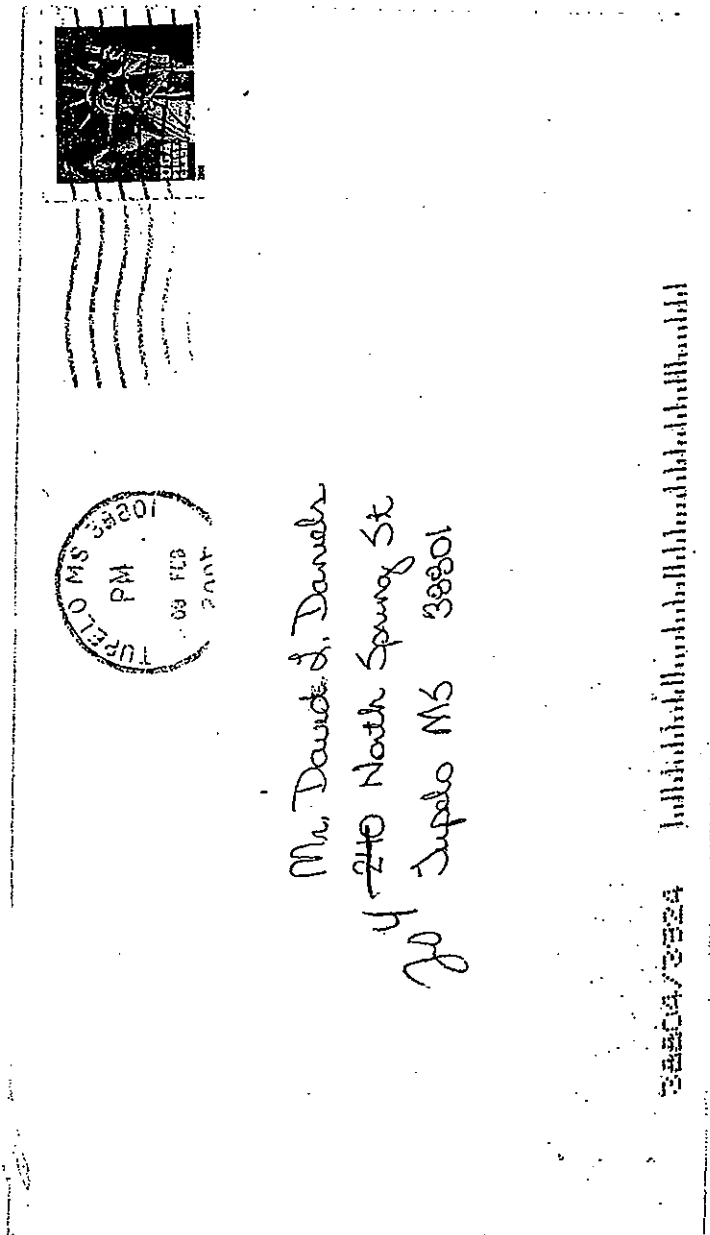 TUPELO MS 38801
PM
09 FEB
Mr. David L. Daniels
240 North Spring St
204
Tupelo MS 38801
38804/3824